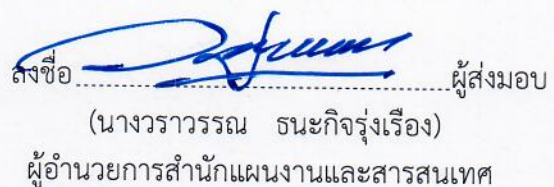 ลงชื่อ ........................................ ผู้ส่งมอบ
(นางวราวรรณ ธนะกิจรุ่งเรือง)
ผู้อำนวยการสำนักแผนงานและสารสนเทศ